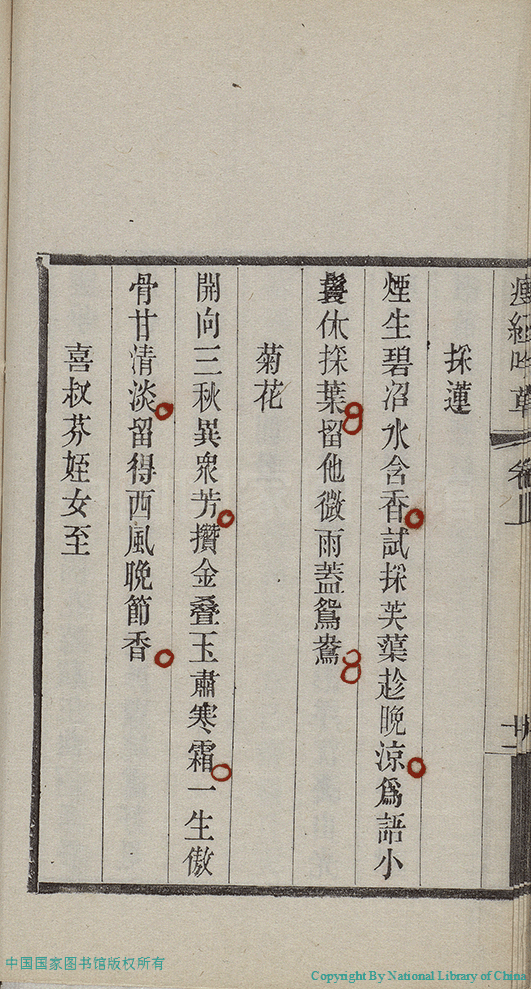 採蓮
煙生碧沼水含香試採芙蕖趁晚涼爲語小
鬟休採葉留他微雨蓋鴛鴦
菊花
開向三秋異衆芳攢金叠玉肅寒霜一生傲
骨甘清淡留得西風晚節香
喜叔芬姪女至
中国国家图书馆版权所有
Copyright By National Library of China